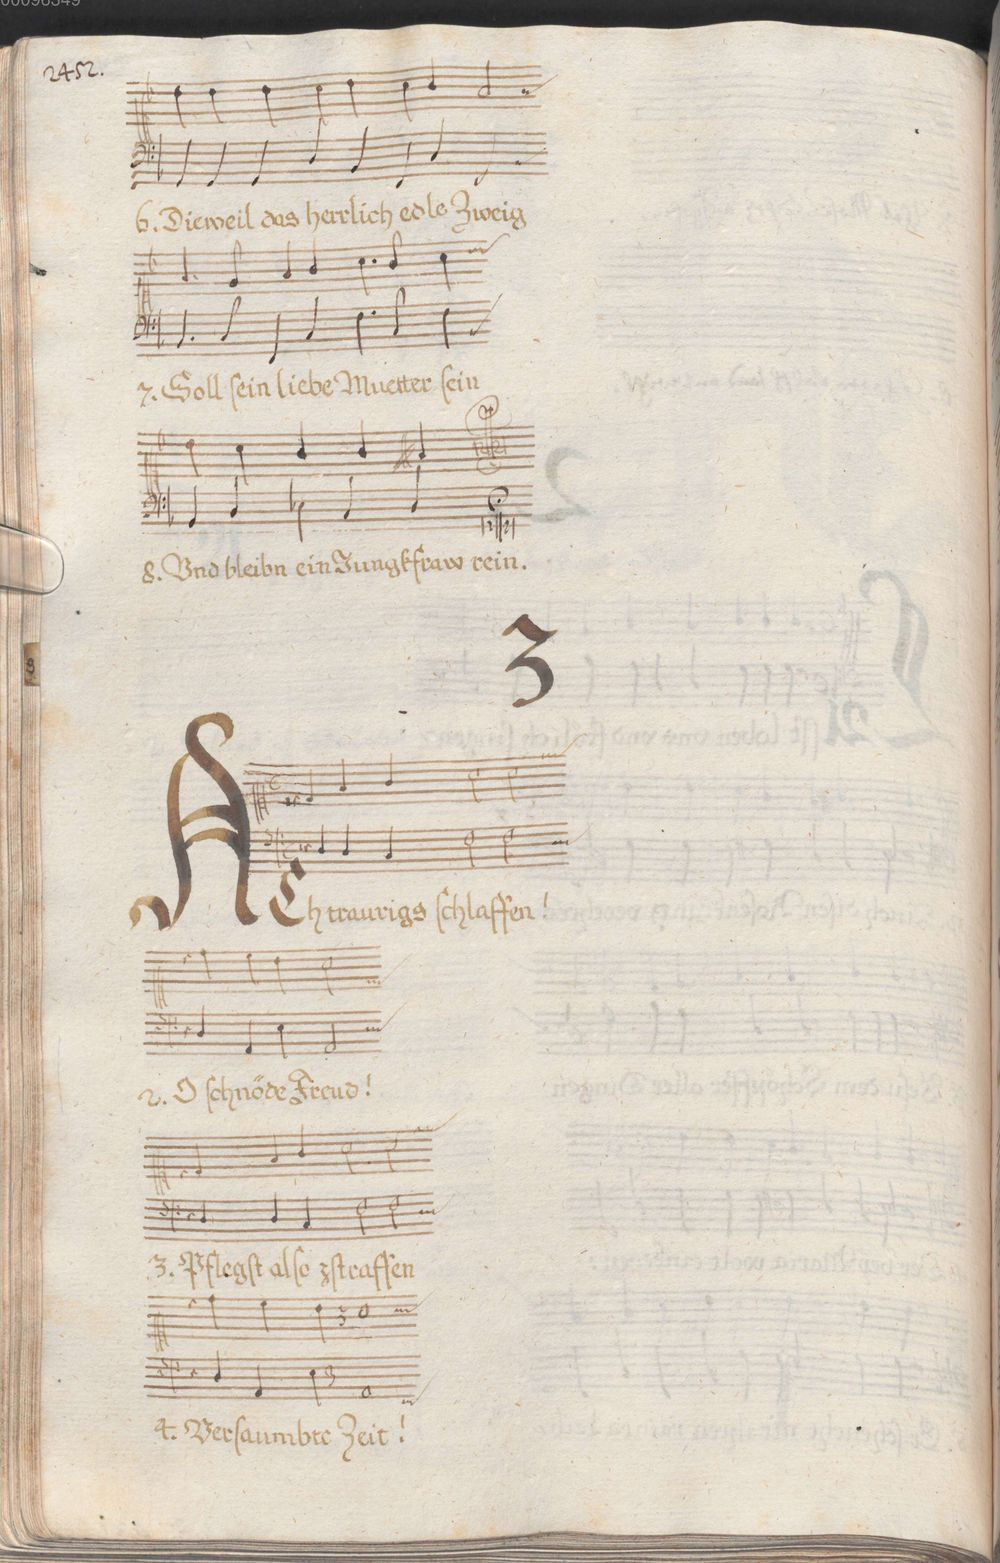 2452.
6. Dieweil das herrlich edle Zweig
7. Soll sein liebe Muetter sein
8. Vnd bleibn ein Jungkfraw rein.
3
ACh traurigs schlaffen!
2. O schnöde Freud!
3. Pflegst also zstraffen
4. Versaumbte Zeit!